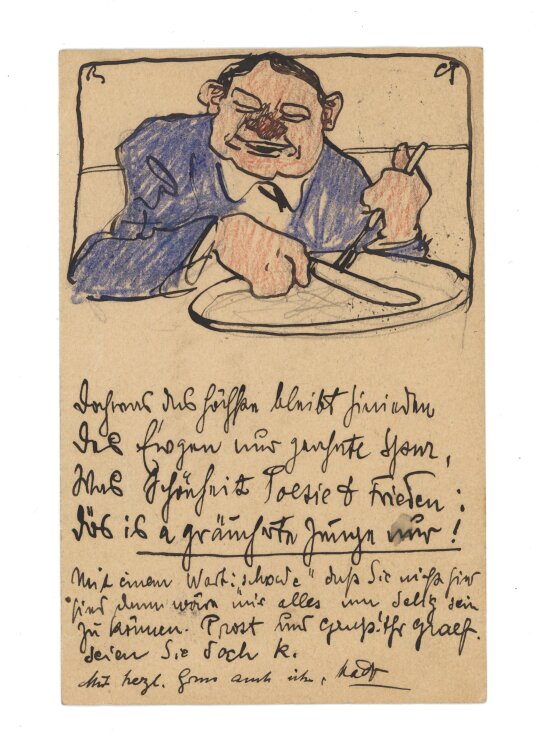 Doch was das höchste bleibt hinieden
Des Ewgen nur geahnte Spur,
Was Schönheit Poesie & Frieden:
dös is a gräucherte Zunge nur!
Mit einem Wort: schade" daß Sie nicht hier
sind denn wäre mir alles um selig sein
zu können. Prost und Gruß Ihr Graef.
seien Sie doch k.
Mit herzl. Gruss auch